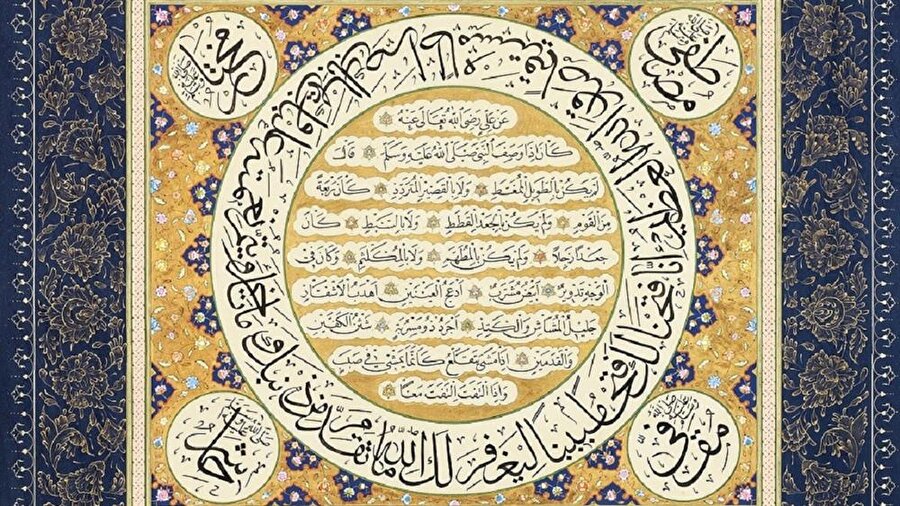 مصطفى
عن علي رضي الله تعالى عنه
كان اذا وصف النبي صلى الله عليه وسلم قال
لم يكن بالطويل الممغط ولا بالقصير المتردد كان ربعة
من القوم ولم يكن بالجعد القطط ولا بالسبط كان
جعدا رجلا ولم يكن بالمطهم ولا بالمكلثم وكان في
الوجه تدوير ابيض مشرب ادعج العينين اهدب الاشفار
جليل المشاش والكتد اجرد ذو مسربة شثن الكفين
والقدمين اذا مشى تقلع كانما يمشي في صبب
واذا التفت التفت معا
انا فتحنا لك فتحا مبينا ليغفر لك الله ما تقدم من ذنبك وما تاخر ويتم نعمته عليك ويهديك صراطا مستقيما
مقفى
حاشر